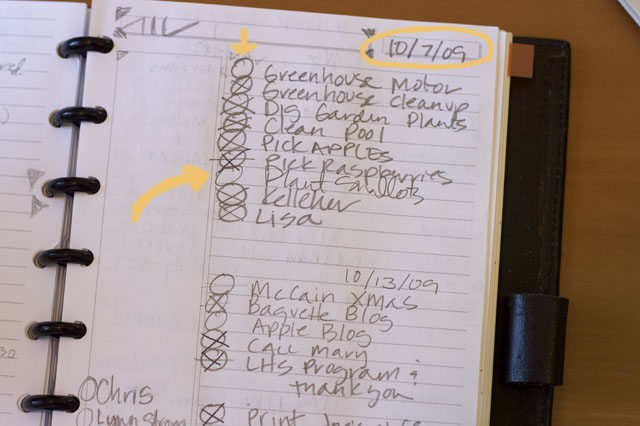 10/7/09
Greenhouse Motor
Greenhouse Cleanup
Dig Garden Plants
Clean Pool
Pick Apples
Pick Raspberries
Plant Shallots
Kelleher
Lisa
10/13/09
McCain Xmas
Baguette Blog
Apple Blog
Call Mary
LHS Program &
thank you
Chris
Print